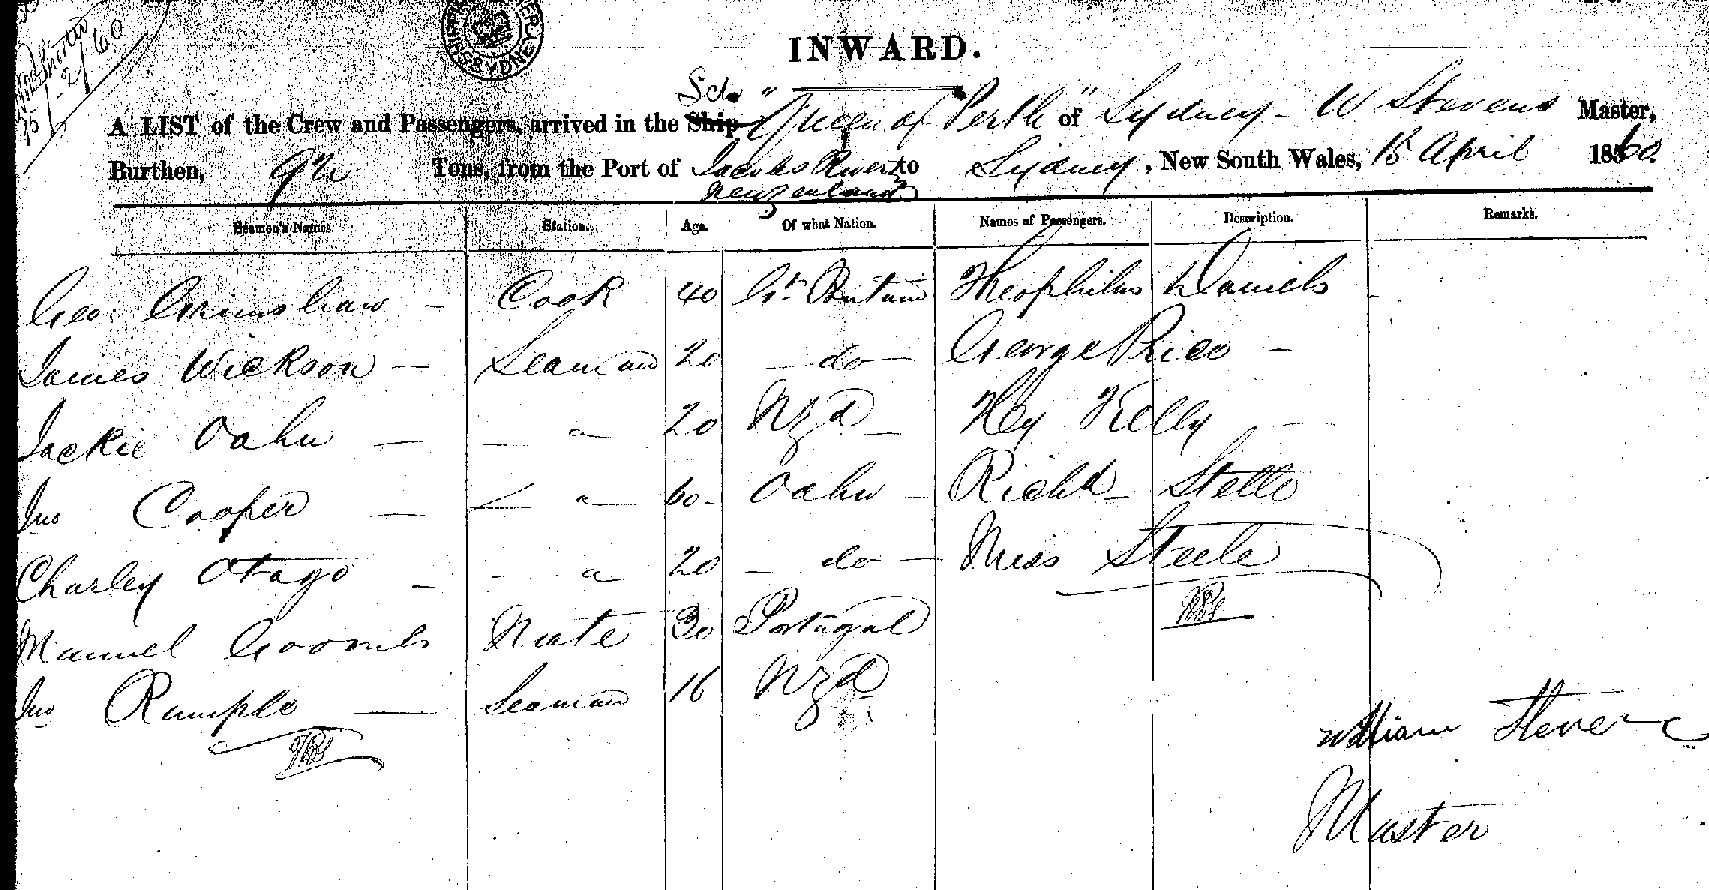 INWARD.
Sch.
A LIST of the Crew and Passengers, arrived in the Ship "Queen of Perth" of Sydney - W Stevens Master,
Burthen, 92 Tons, from the Port of Jacobs River to Sydney, New South Wales, 15 April 1860
New Zealand
Seamen's Names Station. Age. Of what Nation. Names of Passengers. Description. Remarks.
Geo Grimshaw - Cook 40 Gt. Britain Theophilus Daniels
James Wickson - Seaman 20 - do - George Price -
Jackie Oahu - 20 Nzd - Hy Kelly
Jno Cooper - 60 - Oahu - Richd Stelle
Charley Otago - 20 - do - Miss Steele
Manuel Coombs Mate 30 Portugal
Jno Rumple - Seaman 16 Nzd
William Stevens
Master